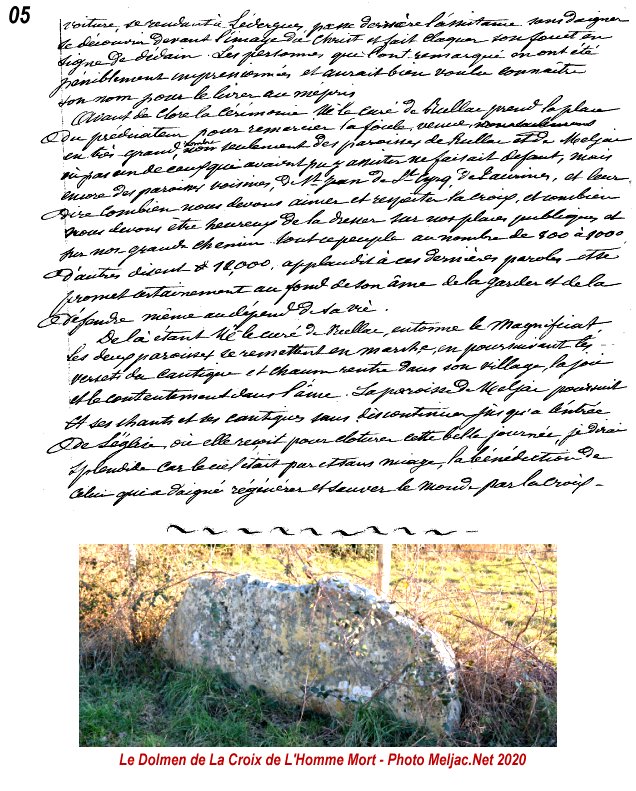 05
voiture, se rendant à Lédergues, passe derrière l'assistance sans daigner
se découvrir devant l'image du Christ et fait claquer son fouet en
signe de dédain. Les personnes qui l'ont remarqué en ont été
péniblement impressionnées et aurait bien voulu connaître
son nom pour le livrer au mépris
Avant de clore la cérémonie Mr le curé de Rullac prend la place
du prédicateur pour remercier la foule, venue
en très grand nombre non seulement des paroisses de Rullac et de Meljac
pas un de ceux qui avaient pu y assister ne faisait défaut, mais
encore des paroisses voisines, de St Jean de St Cyrq de Lauminès, et leur
dire combien nous devons aimer et respecter la croix, et combien
nous devons être heureux de la dresser sur nos places publiques et
sur nos grands chemin. tout ce peuple au nombre de 800 à 1000
d'autres disent 1200, applaudit à ces dernières paroles et se
promet certainement au fond de son âme de la garder et de la
défendre même au dépend de sa vie.
De là étant Mr le curé de Rullac, entonne le Magnificat,
les deux paroisses se remettent en marche, en poursuivant les
versets du Cantique et chacun rentre dans son village, la joie
et le contentement dans l'âme. La paroisse de Meljac poursuit
et ses chants et ses cantiques sans discontinuer jusqu'a l'entrée
de L'église, où elle reçoit pour cloturer cette belle journée, je dirai
splendide car le ciel était par et sans nuage, la bénédiction de
Celui qui a daigné régénérer et sauver le monde par la croix –
Le Dolmen de La Croix de L'Homme Mort - Photo Meljac.Net 2020